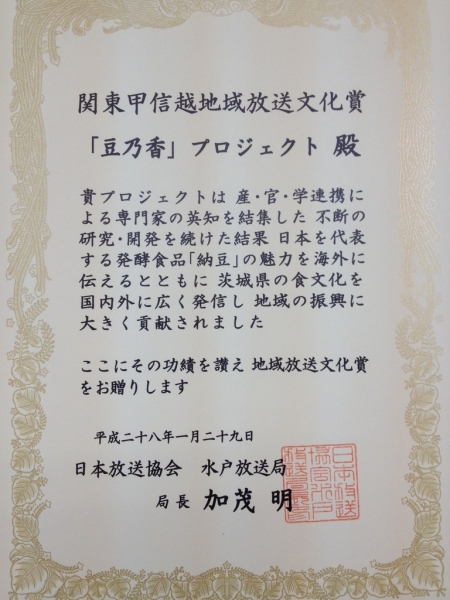 関東甲信越地域放送文化賞
「豆乃香」プロジェクト 殿
貴プロジェクトは 産・官・学連携に
よる専門家の英知を結集した 不断の
研究・開発を続けた結果 日本を代表
する発酵食品「納豆」の魅力を海外に
伝えるとともに 茨城県の食文化を
国内外に広く発信し 地域の振興に
大きく貢献されました
ここにその功績を讃え 地域放送文化賞
をお贈りします
平成二十八年一月二十九日
日本放送協会 水戸放送局
局長 加茂 明